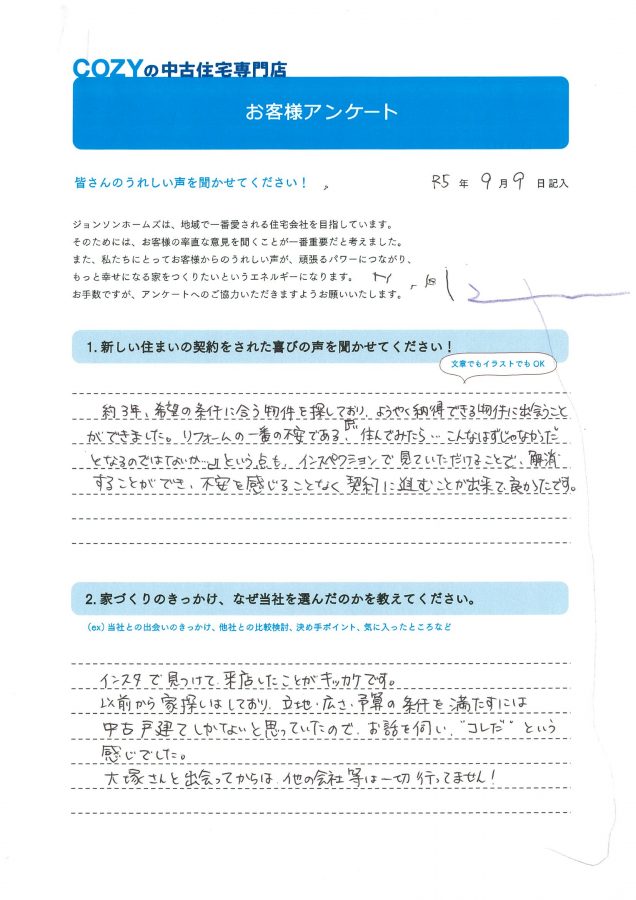 COZYの中古住宅専門店
お客様アンケート
皆さんのうれしい声を聞かせてください！
R5年 9月 9日記入
ジョンソンホームズは、地域で一番愛される住宅会社を目指しています。
そのためには、お客様の率直な意見を聞くことが一番重要だと考えました。
また、私たちにとってお客様からのうれしい声が、頑張るパワーにつながり、
もっと幸せになる家をつくりたいというエネルギーになります。
お手数ですが、アンケートへのご協力いただきますようお願いいたします。
1. 新しい住まいの契約をされた喜びの声を聞かせてください！
文章でもイラストでもOK
約3年、希望の条件に合う物件を探しており、ようやく納得できる物件に出会うこと
ができました。リフォームの一番の不安である、『住んでみたら…こんなはずじゃなかった"
となるのではないか…』という点も、インスペクションで見ていただけることで、解消
することができ、不安を感じることなく契約に進むことが出来て良かったです。
2. 家づくりのきっかけ、なぜ当社を選んだのかを教えてください。
（ex）当社との出会いのきっかけ、他社との比較検討、決め手ポイント、気に入ったところなど
インスタで見つけて、来店したことがキッカケです。
以前から家探しはしており、立地・広さ・予算の条件を満たすには
中古戸建てしかないと思っていたので、お話を伺い、"コレだ"という
感じでした。
大塚さんと出会ってからは、他の会社等は一切行ってません！